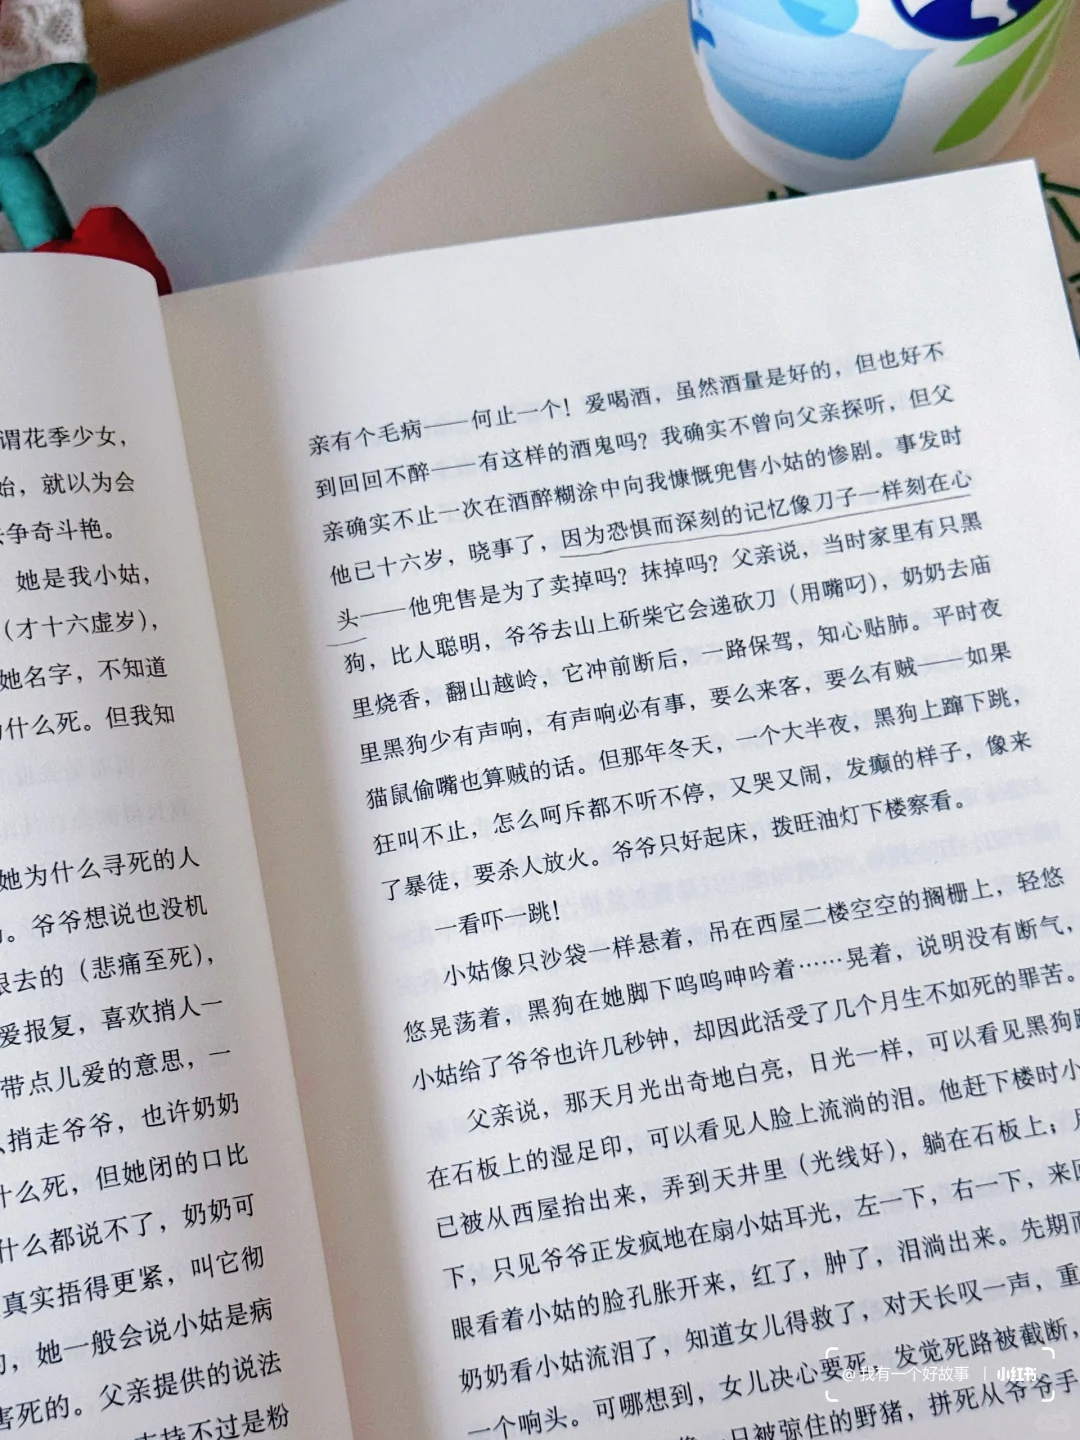 谓花季少女，
始，就以为会
争奇斗艳。
她是我小姑，
（才十六虚岁），
她名字，不知道
什么死。但我知
她为什么寻死的人
。爷爷想说也没机
跟去的（悲痛至死），
爱报复，喜欢捎人一
带点儿爱的意思，一
捎走爷爷，也许奶奶
什么死，但她闭的口比
什么都说不了，奶奶可
真实捂得更紧，叫它彻
，她一般会说小姑是病
害死的。父亲提供的说法
支持不过是粉
亲有个毛病——何止一个！爱喝酒，虽然酒量是好的，但也好不
到回回不醉——有这样的酒鬼吗？我确实不曾向父亲探听，但父
亲确实不止一次在酒醉糊涂中向我慷慨兜售小姑的惨剧。事发时
他已十六岁，晓事了，因为恐惧而深刻的记忆像刀子一样刻在心
头——他兜售是为了卖掉吗？抹掉吗？父亲说，当时家里有只黑
狗，比人聪明，爷爷去山上斫柴它会递砍刀（用嘴叼），奶奶去庙
里烧香，翻山越岭，它冲前断后，一路保驾，知心贴肺。平时夜
里黑狗少有声响，有声响必有事，要么来客，要么有贼——如果
猫鼠偷嘴也算贼的话。但那年冬天，一个大半夜，黑狗上蹿下跳，
狂叫不止，怎么呵斥都不听不停，又哭又闹，发癫的样子，像来
了暴徒，要杀人放火。爷爷只好起床，拨旺油灯下楼察看。
一看吓一跳！
小姑像只沙袋一样悬着，吊在西屋二楼空空的搁栅上，轻悠
悠晃荡着，黑狗在她脚下呜呜呻吟着……晃着，说明没有断气，
小姑给了爷爷也许几秒钟，却因此活受了几个月生不如死的罪苦。
父亲说，那天月光出奇地白亮，日光一样，可以看见黑狗
在石板上的湿足印，可以看见人脸上流淌的泪。他赶下楼时小
已被从西屋抬出来，弄到天井里（光线好），躺在石板上；
下，只见爷爷正发疯地在扇小姑耳光，左一下，右一下，来回
眼看着小姑的脸孔胀开来，红了，肿了，泪淌出来。先期而
奶奶看小姑流泪了，知道女儿得救了，对天长叹一声，重
一个响头。可哪想到，女儿决心要死，发觉死路被截断，
只被弶住的野猪，拼死从爷爷手
@我有一个好故事 | 小红书